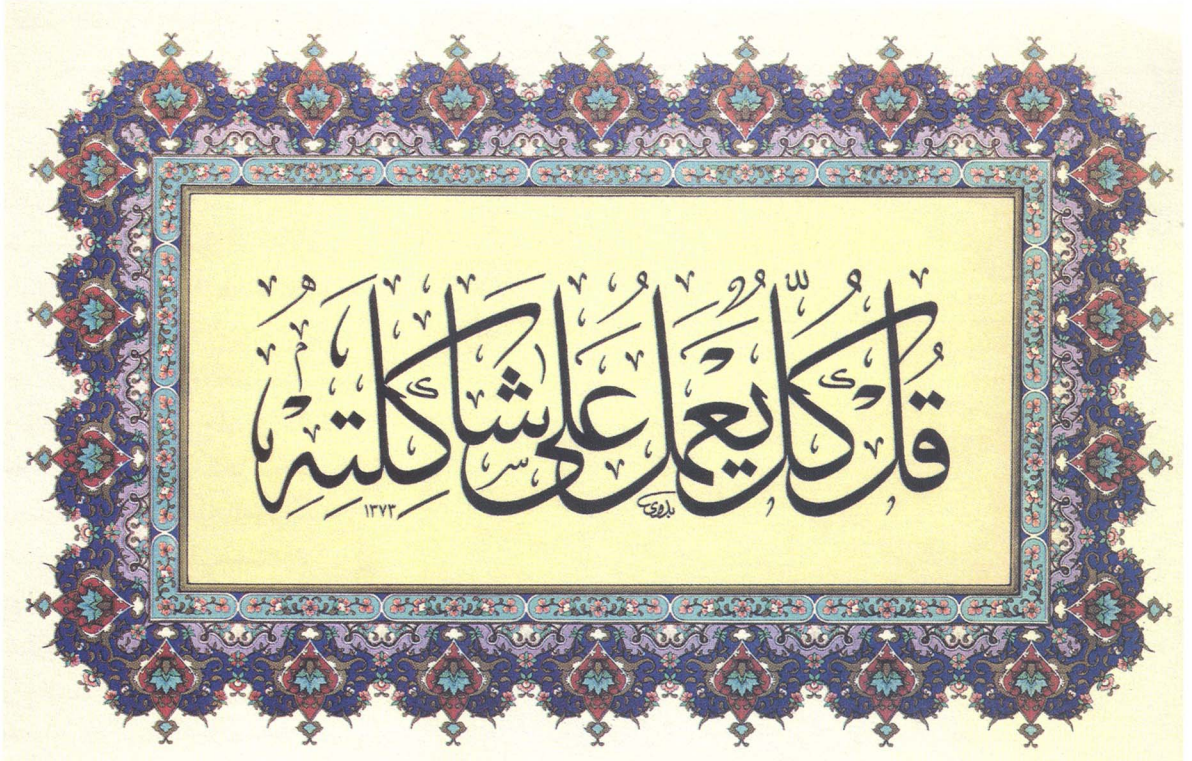 قُلْ كُلٌّ يَعْمَلُ عَلَى شَاكِلَتِهِ
بدوي
١٣٧٣